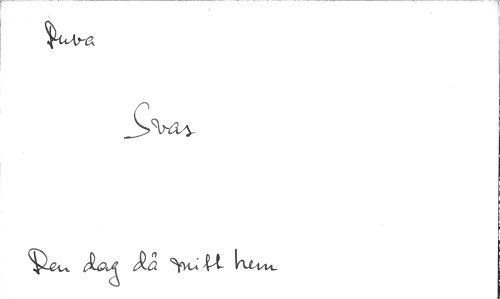 Duva
Svas
Den dag då mitt hem